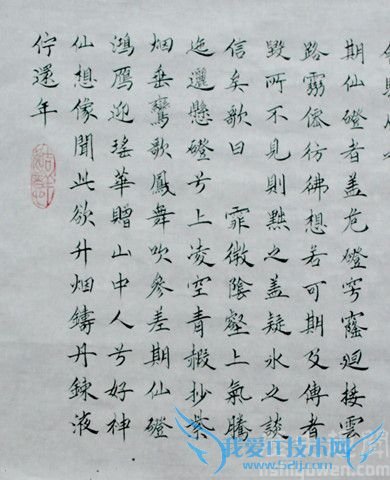 期仙磴者蓋危磴穹窿迴接雲
路靈僊彷彿想若可期及傳者
毀所不見則黜之蓋疑冰之談
信矣歌曰 霏微陰壑上氣騰
迤邐懸磴兮上凌空青赮抄紫
烟垂鸞歌鳳舞吹參差期仙磴
鴻鴈迎瑤華贈山中人兮好神
仙想像聞此欲升烟鑄丹鍊液
佇還年
我爱IT技术网
lishiquwen.com